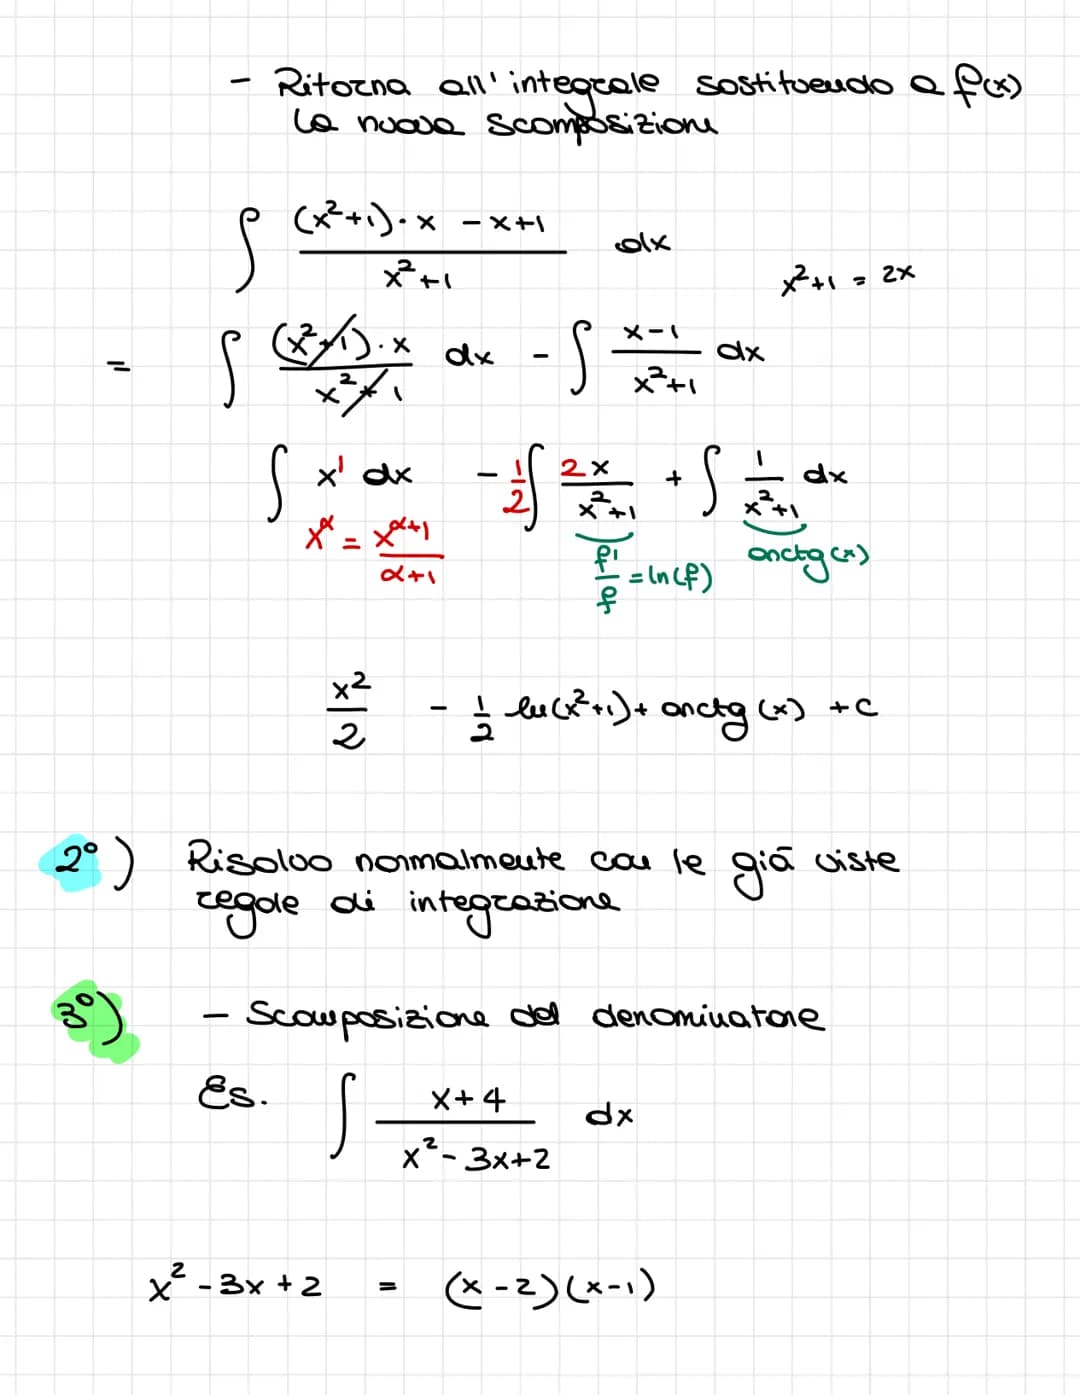 - Ritorna all'integrale sostituendo a f(x)
la nuova scomposizione
∫ (x²+1)·x - x+1 / x²+1 dx
x²+1 = 2x
= ∫ (x²+1)·x / x²+1 dx - ∫ x-1 / x²+1 dx
∫ x¹ dx - 1/2 ∫ 2x / x²+1 + ∫ 1 / x²+1 dx
x^α = x^α+1 / α+1
f' / f = ln(f)
arctg(x)
x² / 2 - 1/2 ln(x²+1) + arctg(x) + c
2°) Risolvo normalmente con le già viste
regole di integrazione
3°) - Scomposizione del denominatore
Es. ∫ x+4 / x²-3x+2 dx
x²-3x+2 = (x-2)(x-1)